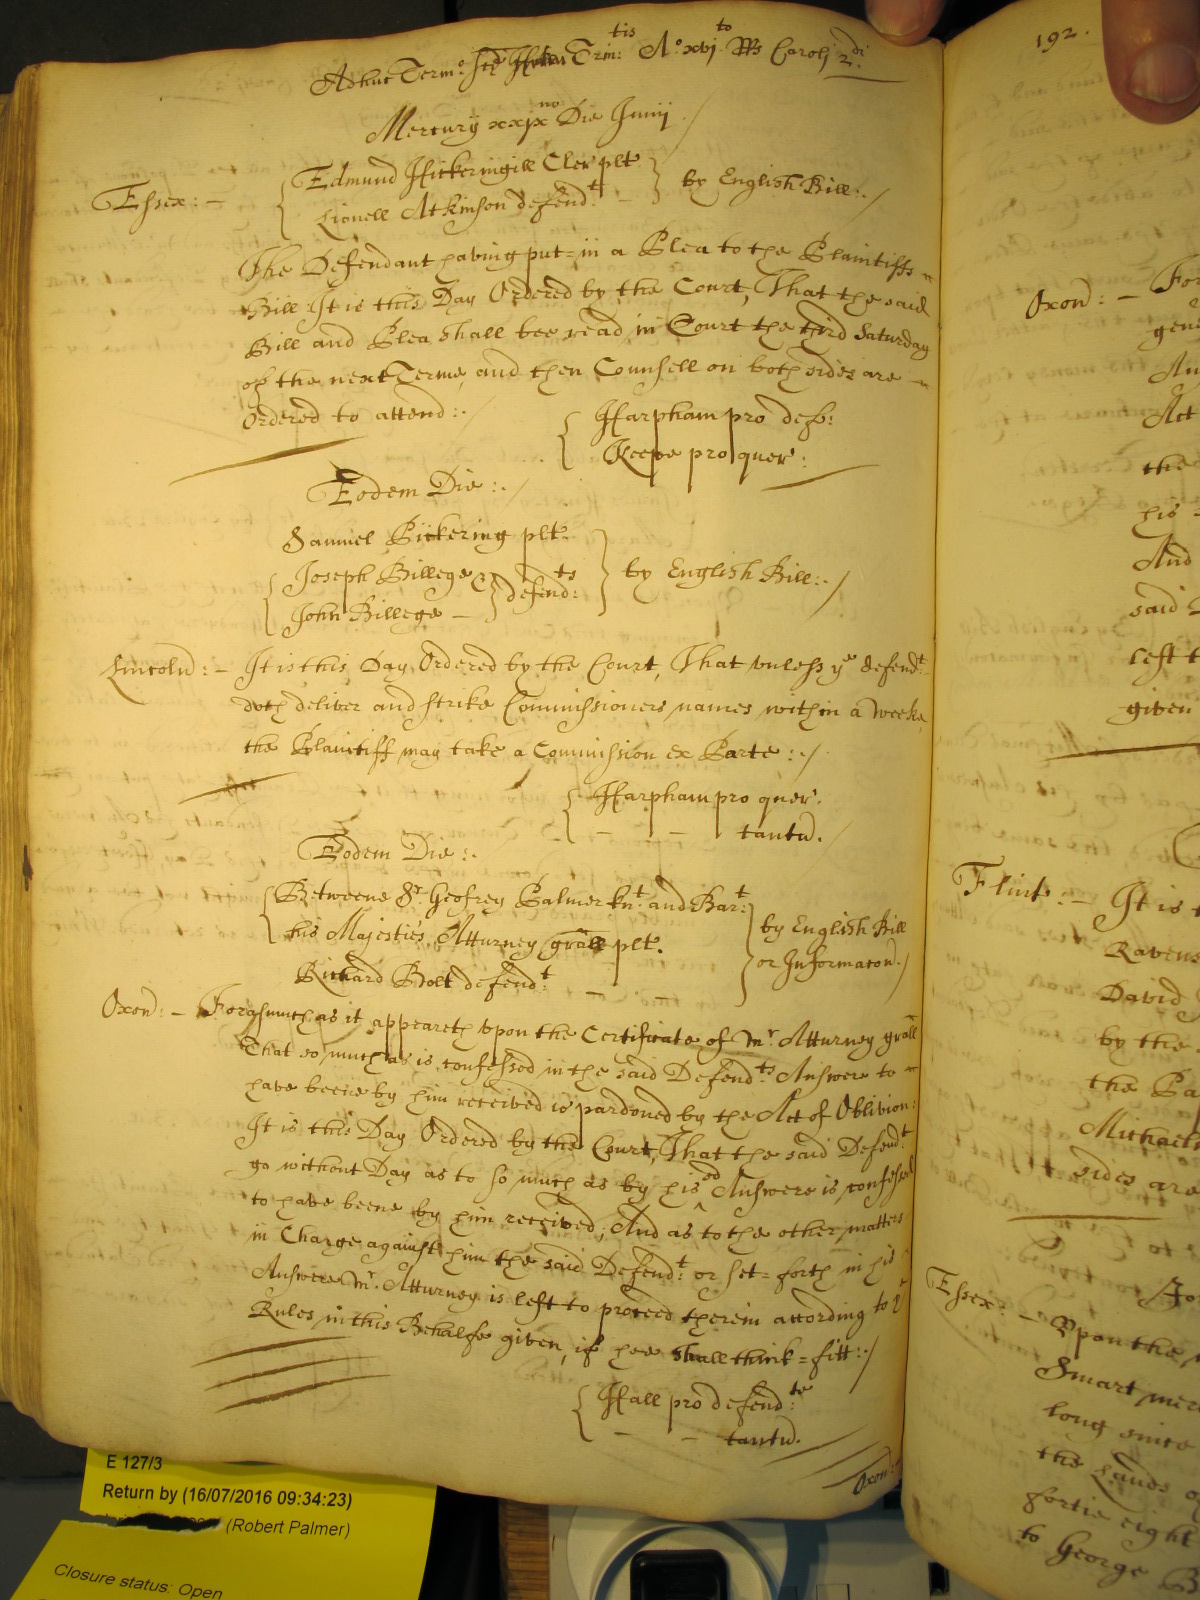 Adhuc Termo: Sce Trin:tis Ao xvjto RRs Caroli 2di
Mercurij xxjxno Die Junij
Essex: - Edmund Hickeringill Cler plt
Lionell Atkinson defendt: - by English Bill:
The Defendant having put=in a Plea to the Plaintiffs
Bill It is this Day Ordered by the Court, That the said
Bill and Plea shall bee read in Court the third Saturday
of the next Terme and then Counsell on both sides are
Ordered to attend:.
Harpham pro def:
Keepe pro quer:
Eodem Die:.
Samuel Pickering plt.
Joseph Billege &
John Billege - defend:ts by English Bill:.
Lincoln: - It is this Day Ordered by the Court, That unless ye defendt:
doth deliver and strike Commissioners names within a weeke
the Plaintiff may take a Commission ex Parte:.
Harpham pro quer.
- - tantu.
Eodem Die:.
Betweene Sr. Geofrey Palmer knt. and Bart:
his Majesties Atturney grall plt.
Richard Bolt defend:t - by English Bill
or Informacon.
Oxon: - Forasmuch as it appeareth upon the Certificate of Mr. Atturney grall
That so much as is confessed in the said Defend:ts Answere to
have beene by him received is pardoned by the Act of Oblivion:
It is this Day Ordered by the Court, That the said Defend:t
go without Day as to so much as by his sd Answere is confessed
to have beene by him received; And as to the other matters
in Charge against him the said Defend:t or set=forth in his
Answere Mr. Atturney is left to proceed therein according to ye
Rules in this Behalfe given, if hee shall think=fitt:.
Hall pro defend:te
- - tantu.
Oxon:
192.
Oxon: - For
gen
An
Act
the
his
And
said
left t
given
Flint: - It is t
Ravens
David
by the
the Pa
Michael
sides are
Essex: -
Upon the
Smart mer
long since
the Lands o
fortie eight
to George B
E 127/3
Return by (16/07/2016 09:34:23)
(Robert Palmer)
Closure status: Open